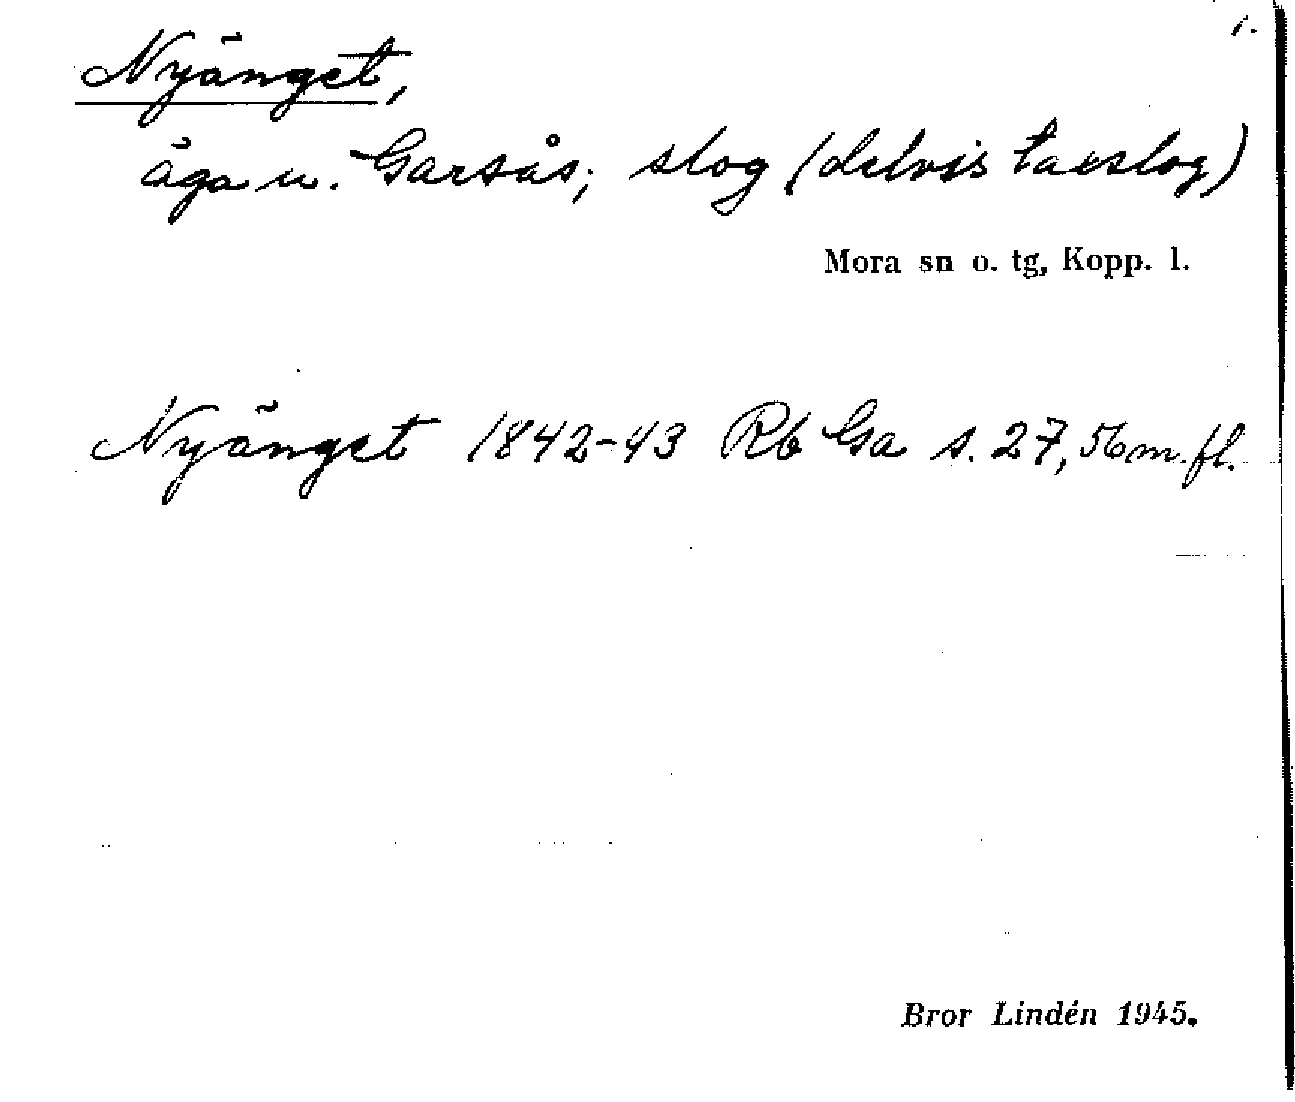 1.
Nyänget,
äga u. Garsås; slog (delvis taeslog)
Mora sn o. tg, Kopp. l.
Nyänget 1842-43 Rb Ga s. 27, 56 m. fl.
Bror Lindén 1945.